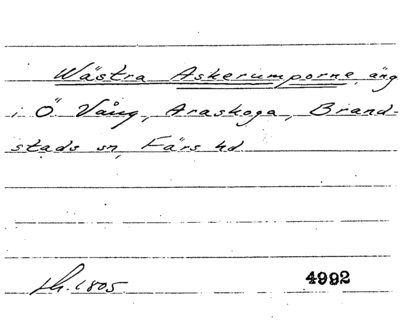 Wästra Askerumporne, äng
i Ö. Vång, Araskoga, Brand-
stads sn, Färs hd
sk. 1805 4992